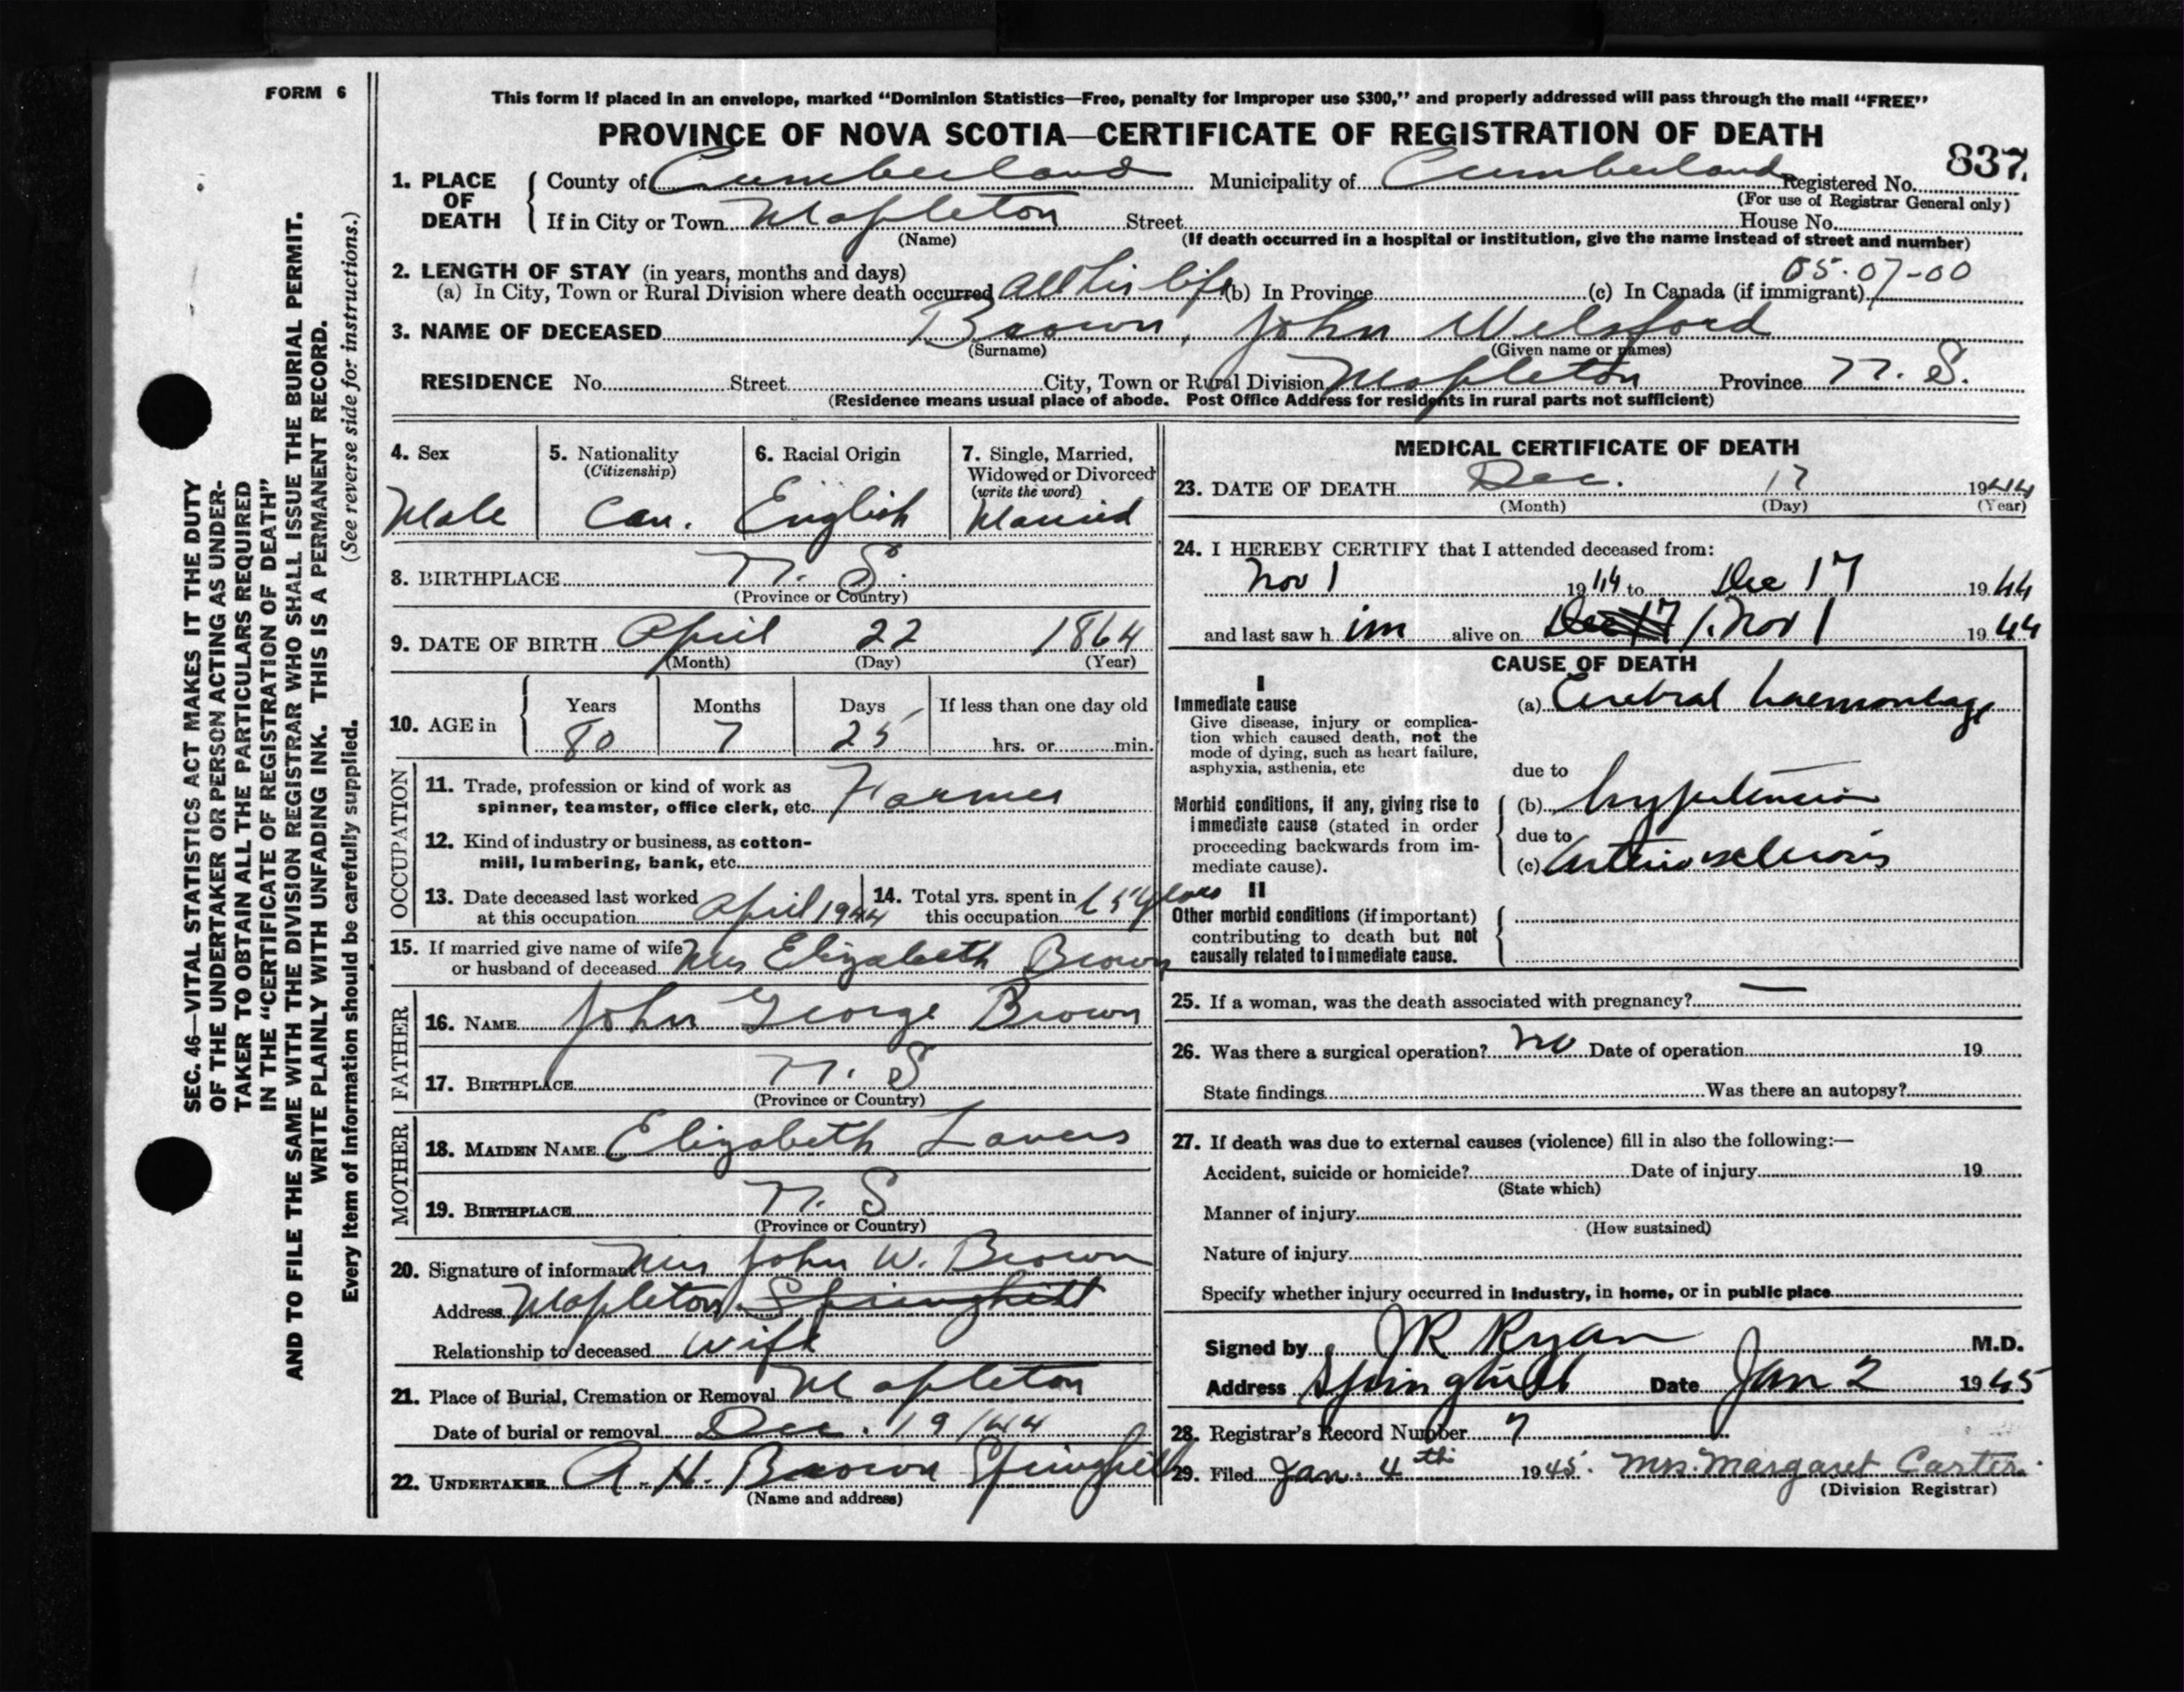 FORM 6
This form if placed in an envelope, marked “Dominion Statistics—Free, penalty for improper use $300,” and properly addressed will pass through the mail “FREE”
PROVINCE OF NOVA SCOTIA—CERTIFICATE OF REGISTRATION OF DEATH
837.
1. PLACE OF DEATH { County of Cumberland Municipality of Cumberland Registered No.
(For use of Registrar General only)
If in City or Town Mapleton Street House No.
(Name) (If death occurred in a hospital or institution, give the name instead of street and number)
2. LENGTH OF STAY (in years, months and days) 05-07-00
(a) In City, Town or Rural Division where death occurred all his life (b) In Province (c) In Canada (if immigrant)
3. NAME OF DECEASED Brown, John Welsford
(Surname) (Given name or names)
RESIDENCE No. Street City, Town or Rural Division Mapleton Province N. S.
(Residence means usual place of abode. Post Office Address for residents in rural parts not sufficient)
4. Sex
Male
5. Nationality
(Citizenship)
Can.
6. Racial Origin
English
7. Single, Married,
Widowed or Divorced
(write the word)
Married
8. BIRTHPLACE N. S.
(Province or Country)
9. DATE OF BIRTH April 22 1864
(Month) (Day) (Year)
10. AGE in { Years Months Days If less than one day old
80 7 25 hrs. or min.
OCCUPATION
11. Trade, profession or kind of work as
spinner, teamster, office clerk, etc. Farmer
12. Kind of industry or business, as cotton-
mill, lumbering, bank, etc.
13. Date deceased last worked
at this occupation April 1944
14. Total yrs. spent in
this occupation 65 years
15. If married give name of wife
or husband of deceased Mrs Elizabeth Brown
FATHER
16. NAME John George Brown
17. BIRTHPLACE N. S
(Province or Country)
MOTHER
18. MAIDEN NAME Elizabeth Lavers
19. BIRTHPLACE N. S
(Province or Country)
20. Signature of informant Mrs John W. Brown
Address Mapleton Springhill
Relationship to deceased wife
21. Place of Burial, Cremation or Removal Mapleton
Date of burial or removal Dec. 19/44
22. UNDERTAKER A. H. Brown Springhill
(Name and address)
MEDICAL CERTIFICATE OF DEATH
23. DATE OF DEATH Dec. 17 1944
(Month) (Day) (Year)
24. I HEREBY CERTIFY that I attended deceased from:
Nov 1 1944 to Dec 17 1944
and last saw h im alive on Dec 17 Nov 1 1944
CAUSE OF DEATH
I
Immediate cause
Give disease, injury or complica-
tion which caused death, not the
mode of dying, such as heart failure,
asphyxia, asthenia, etc
(a) Cerebral haemorrhage
due to
Morbid conditions, if any, giving rise to
immediate cause (stated in order
proceeding backwards from im-
mediate cause).
(b) hypertension
due to
(c) Arteriosclerosis
II
Other morbid conditions (if important)
contributing to death but not
causally related to immediate cause.
25. If a woman, was the death associated with pregnancy? —
26. Was there a surgical operation? no Date of operation 19
State findings Was there an autopsy?
27. If death was due to external causes (violence) fill in also the following:—
Accident, suicide or homicide? Date of injury 19
(State which)
Manner of injury
(How sustained)
Nature of injury
Specify whether injury occurred in industry, in home, or in public place
Signed by JR Ryan M.D.
Address Springhill Date Jan 2 1945
28. Registrar's Record Number 7
29. Filed Jan. 4th 1945. Mrs. Margaret Carter.
(Division Registrar)
SEC. 46—VITAL STATISTICS ACT MAKES IT THE DUTY
OF THE UNDERTAKER OR PERSON ACTING AS UNDER-
TAKER TO OBTAIN ALL THE PARTICULARS REQUIRED
IN THE “CERTIFICATE OF REGISTRATION OF DEATH”
AND TO FILE THE SAME WITH THE DIVISION REGISTRAR WHO SHALL ISSUE THE BURIAL PERMIT.
WRITE PLAINLY WITH UNFADING INK. THIS IS A PERMANENT RECORD.
Every item of information should be carefully supplied. (See reverse side for instructions.)